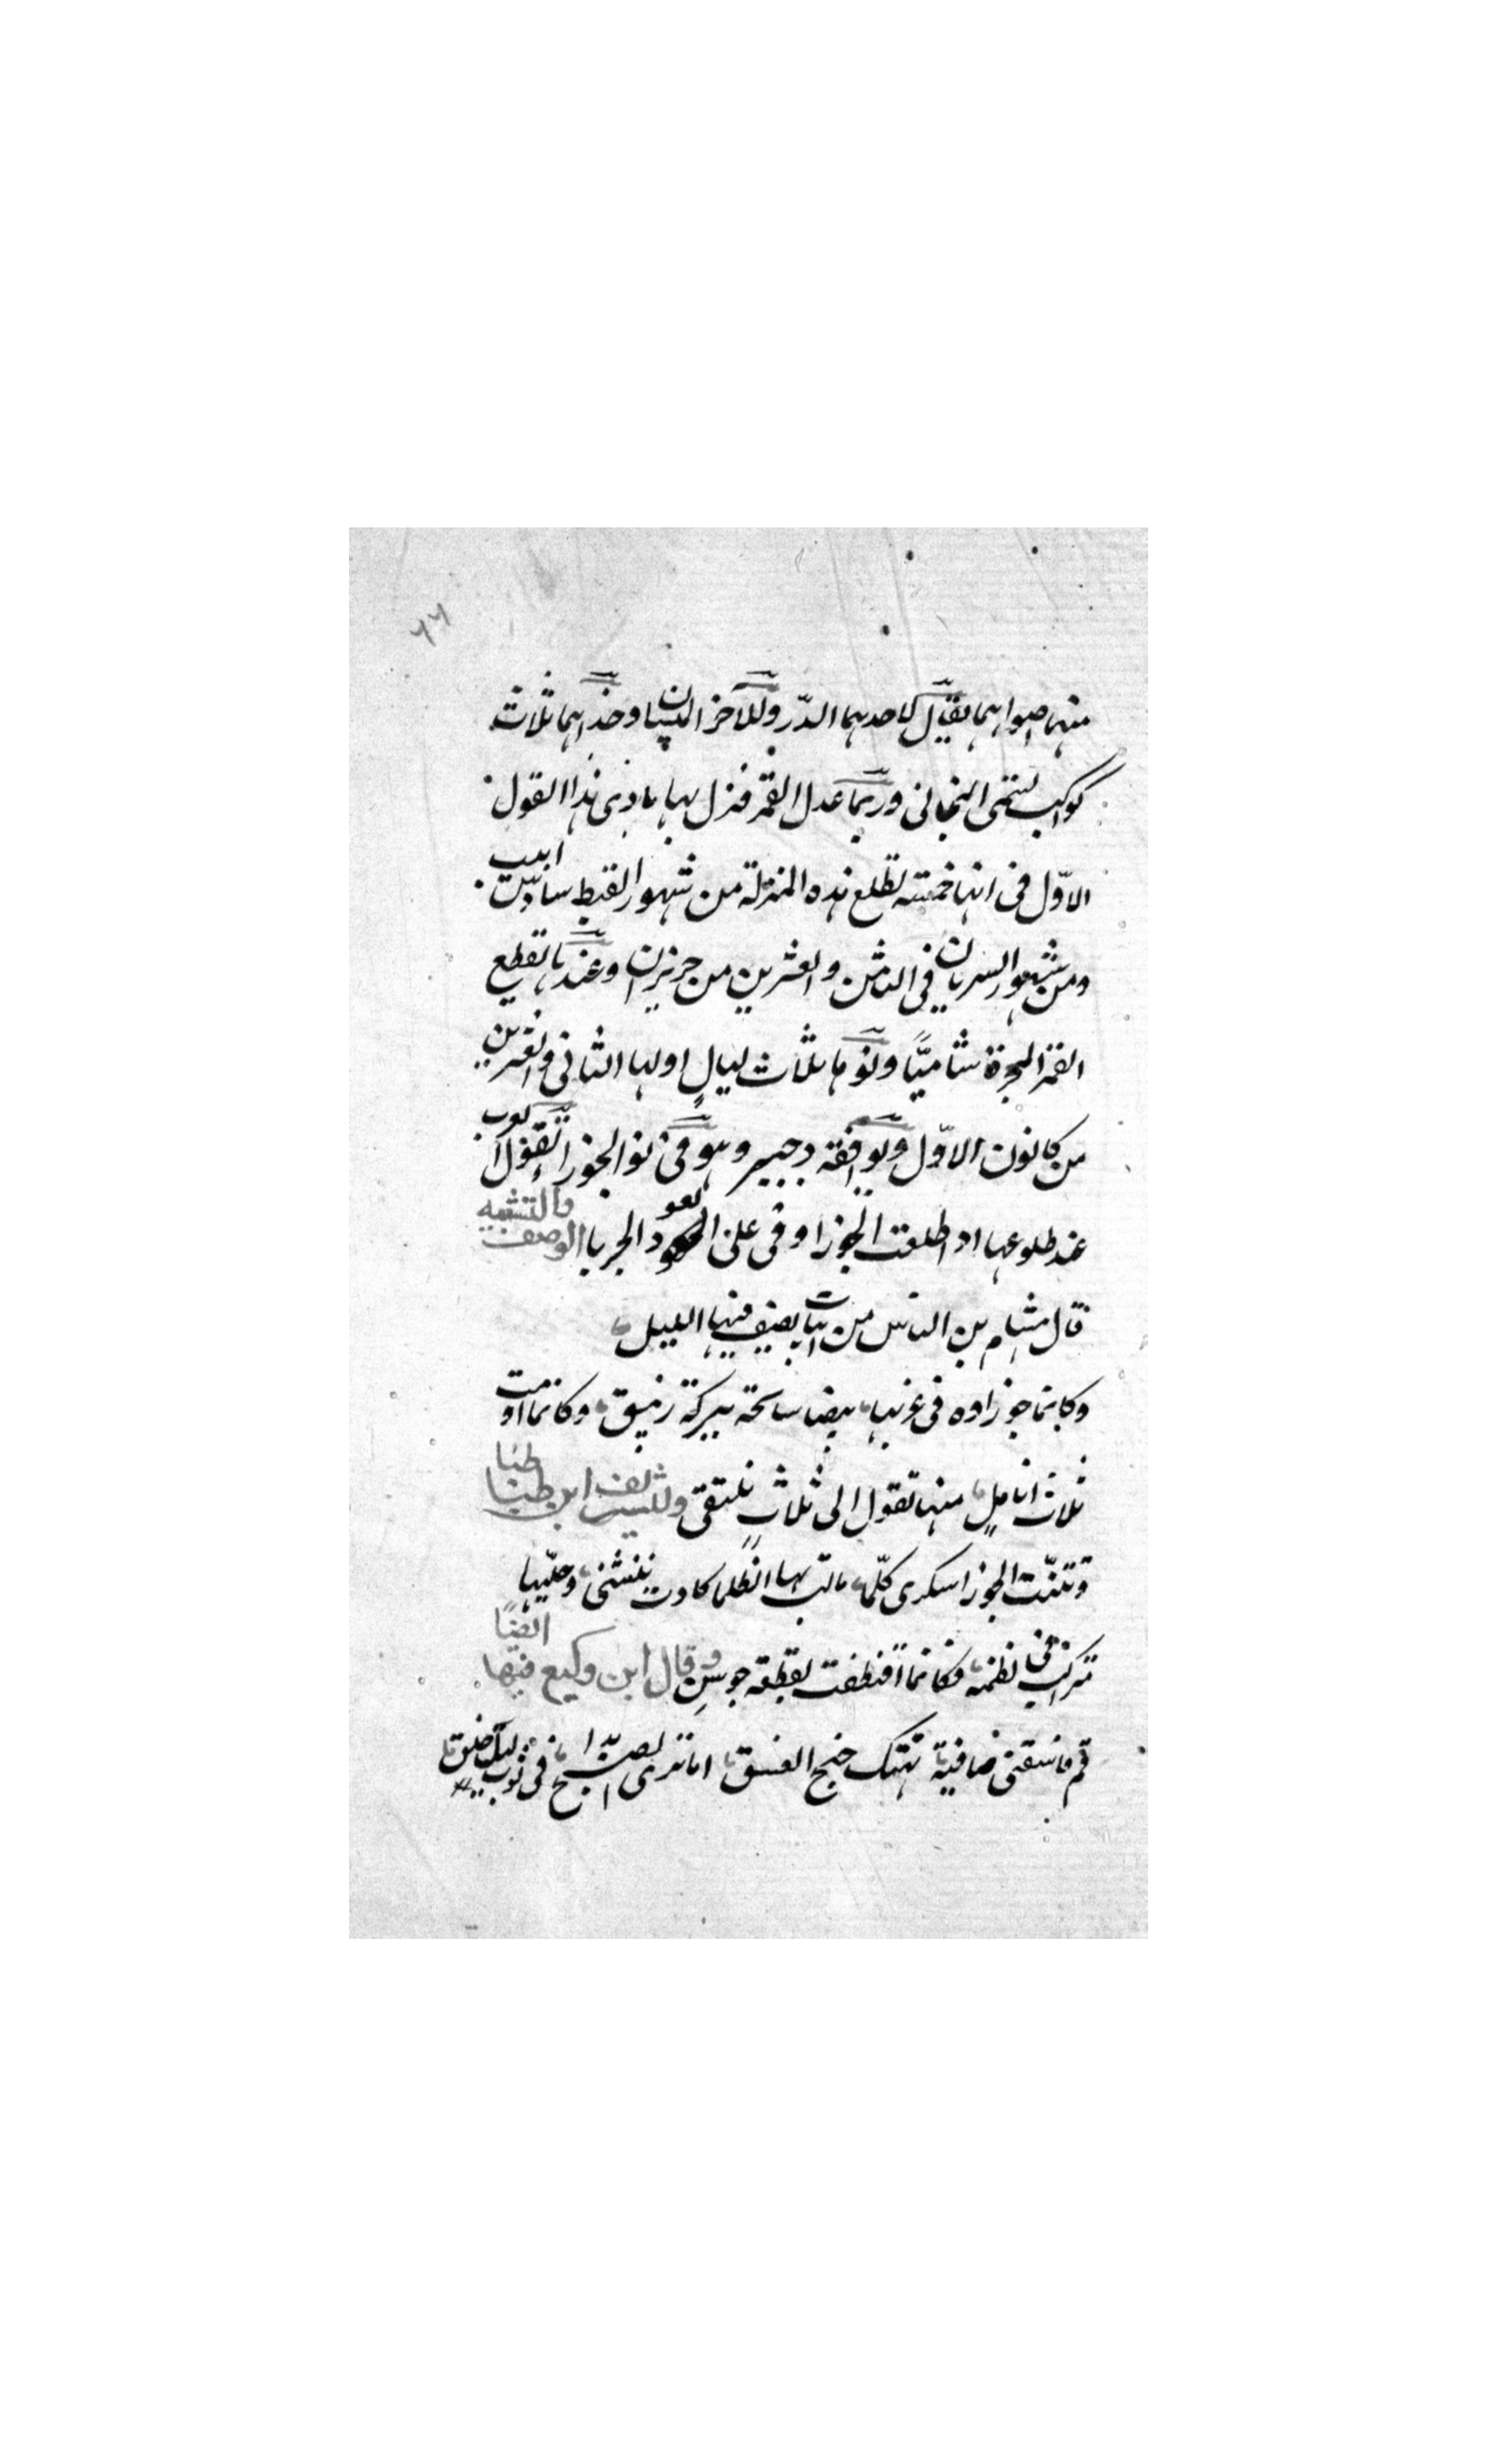 ٦٦
منها اضواهما يقال لاحدهما الزر وللآخر الميسان وحذاهما ثلاث
كواكب تسمى التحاتى وربما عدل القمر فنزل بها وذى هذا القول
الاوّل فى انها خمسة تطلع هذه المنزلة من شهور القبط سادس ابيب
ومن شهور السريان فى الثامن والعشرين من حزيران وعندها تقطع
القمر المجرة شاميًّا ونوها ثلاث ليالٍ اولها الثانى والعشرين
من كانون الاوّل ويوافقه دجنبر وهو فى نو الجوزا تقول العرب
عند طلوعها اذا طلعت الجوزا وفى على العود الحربا الوصف والتشبيه
قال هشام بن الناس من ابيات يصف فيها الليل
وكانما جوزاوه فى غربها بيضا سابحة ببركة زنبق وكانما اومت
ثلاث انامل منها تقول الى ثلاث نلتقى وللشريف ابن طباطبا
وتثنّت الجوزا سكرى كلّما مالت بها الظلما كادت تنثنى وحليها
تركب فى نظمه فكانما قنطفت بقطعة جوسن وقال ابن وكيع فيها ايضًا
قم فاسقنى صافية تهتك جنح الغسق اما ترى الصبح بدا فى ثوب ليل خلق